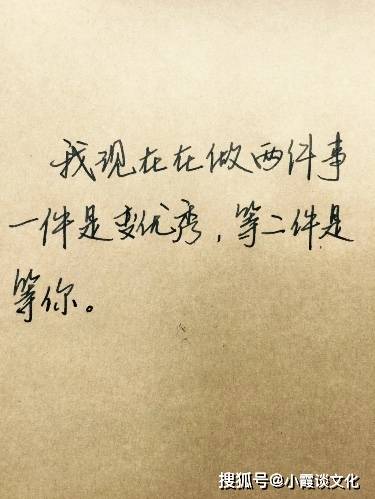 我现在在做两件事
一件是变优秀，等二件是
等你。
搜狐号@小霞谈文化